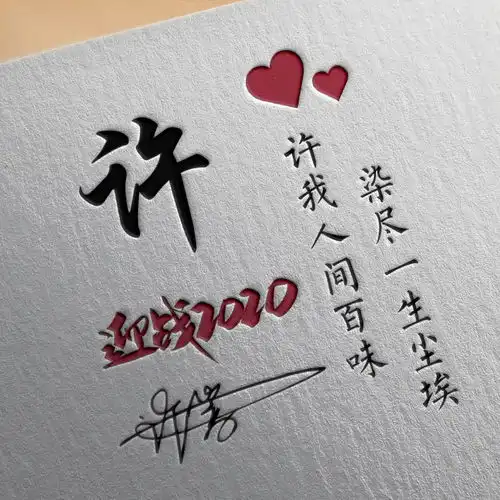 许
迎战2020
许我人间百味
染尽一生尘埃